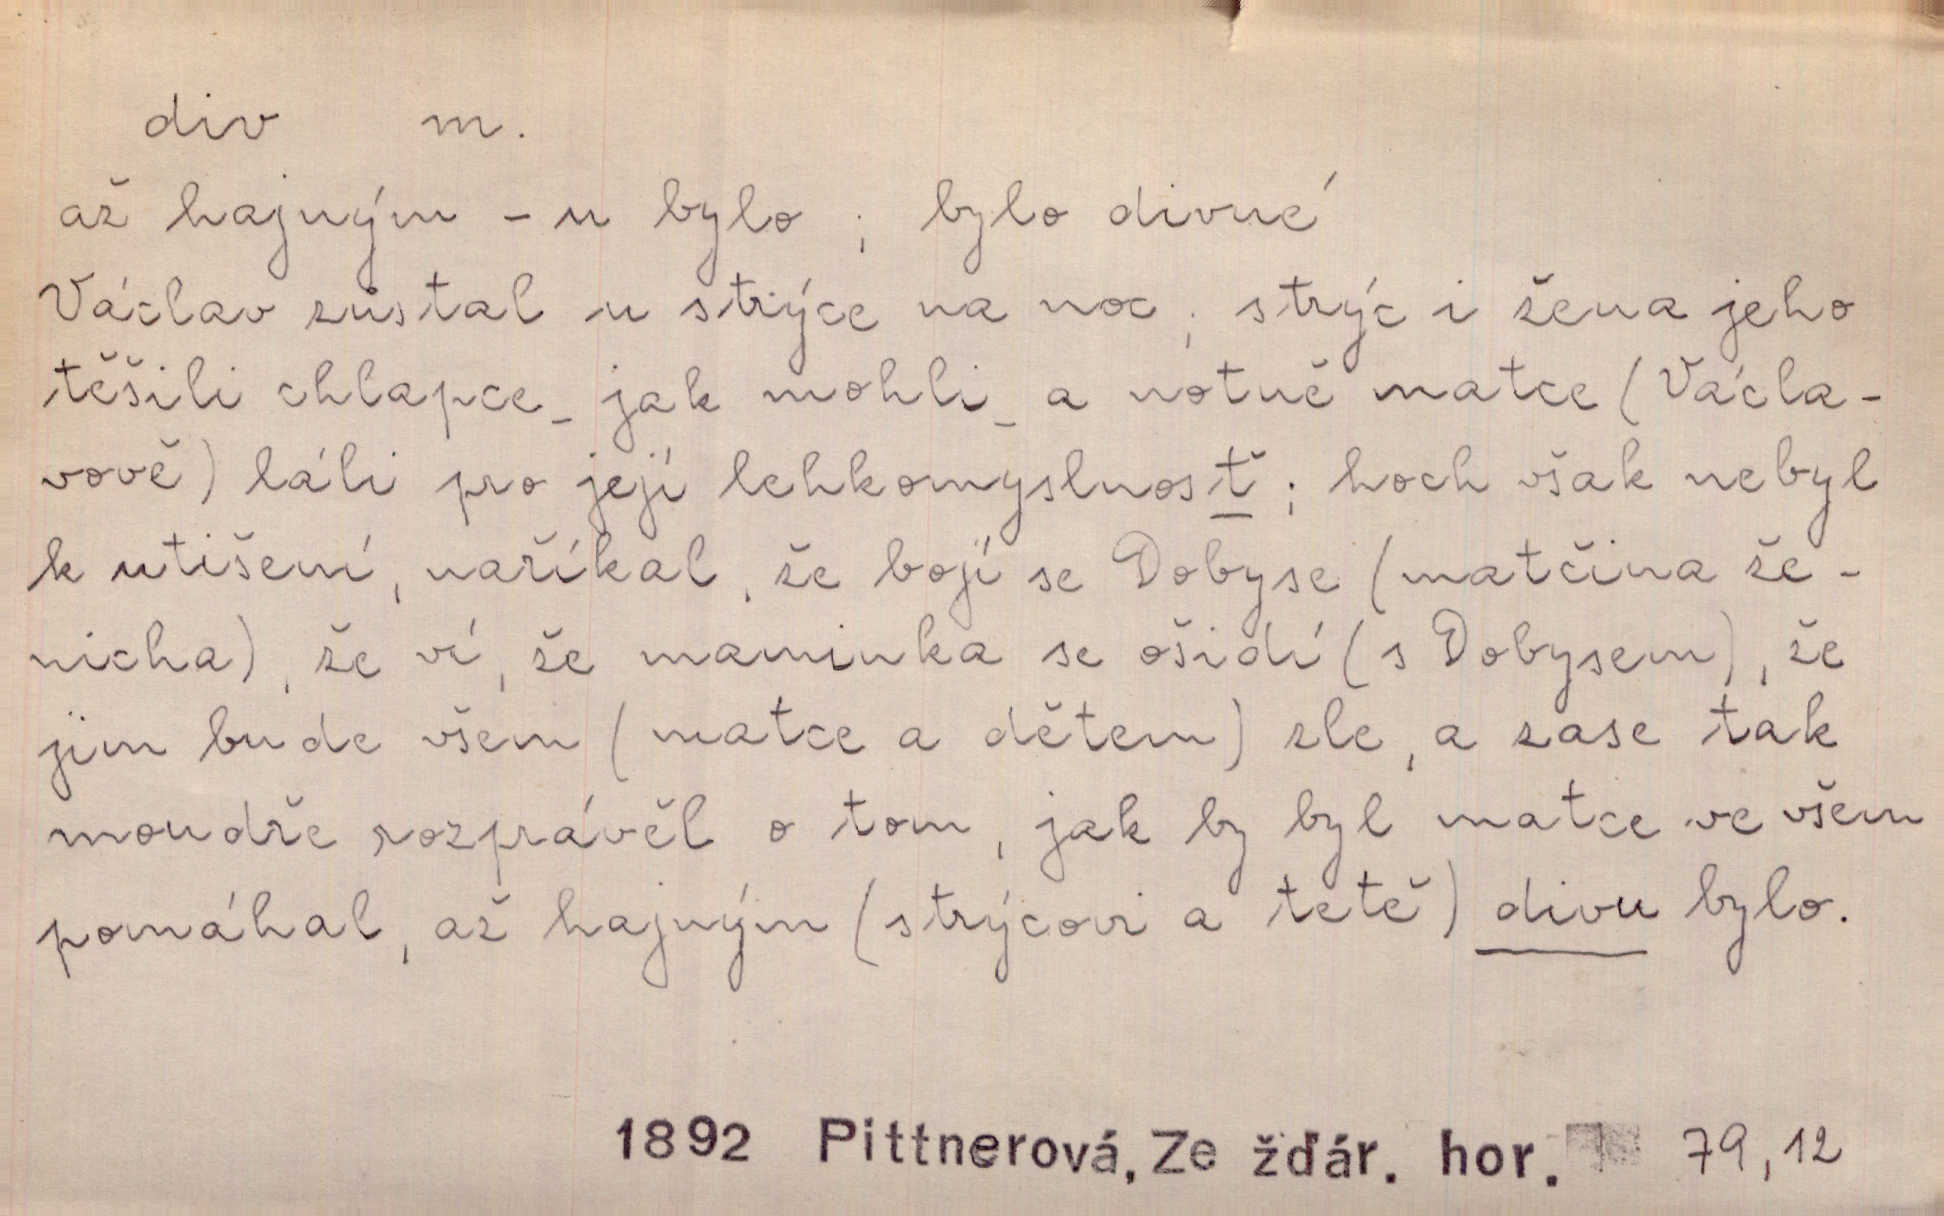 div m.
až hajným - u bylo ; bylo divné
Václav zůstal u strýce na noc ; strýc i žena jeho
těšili chlapce_ jak mohli_ a notně matce (Václa-
vově) láli pro její lehkomyslnosť ; hoch však nebyl
k utišení, naříkal, že bojí se Dobyse (matčina že-
nicha), že ví, že maminka se ošidí (s Dobysem), že
jim bude všem (matce a dětem) zle, a zase tak
moudře rozprávěl o tom, jak by byl matce ve všem
pomáhal, až hajným (strýcovi a tetě) divu bylo.
1892 Pittnerová, Ze žďár. hor. 79,12